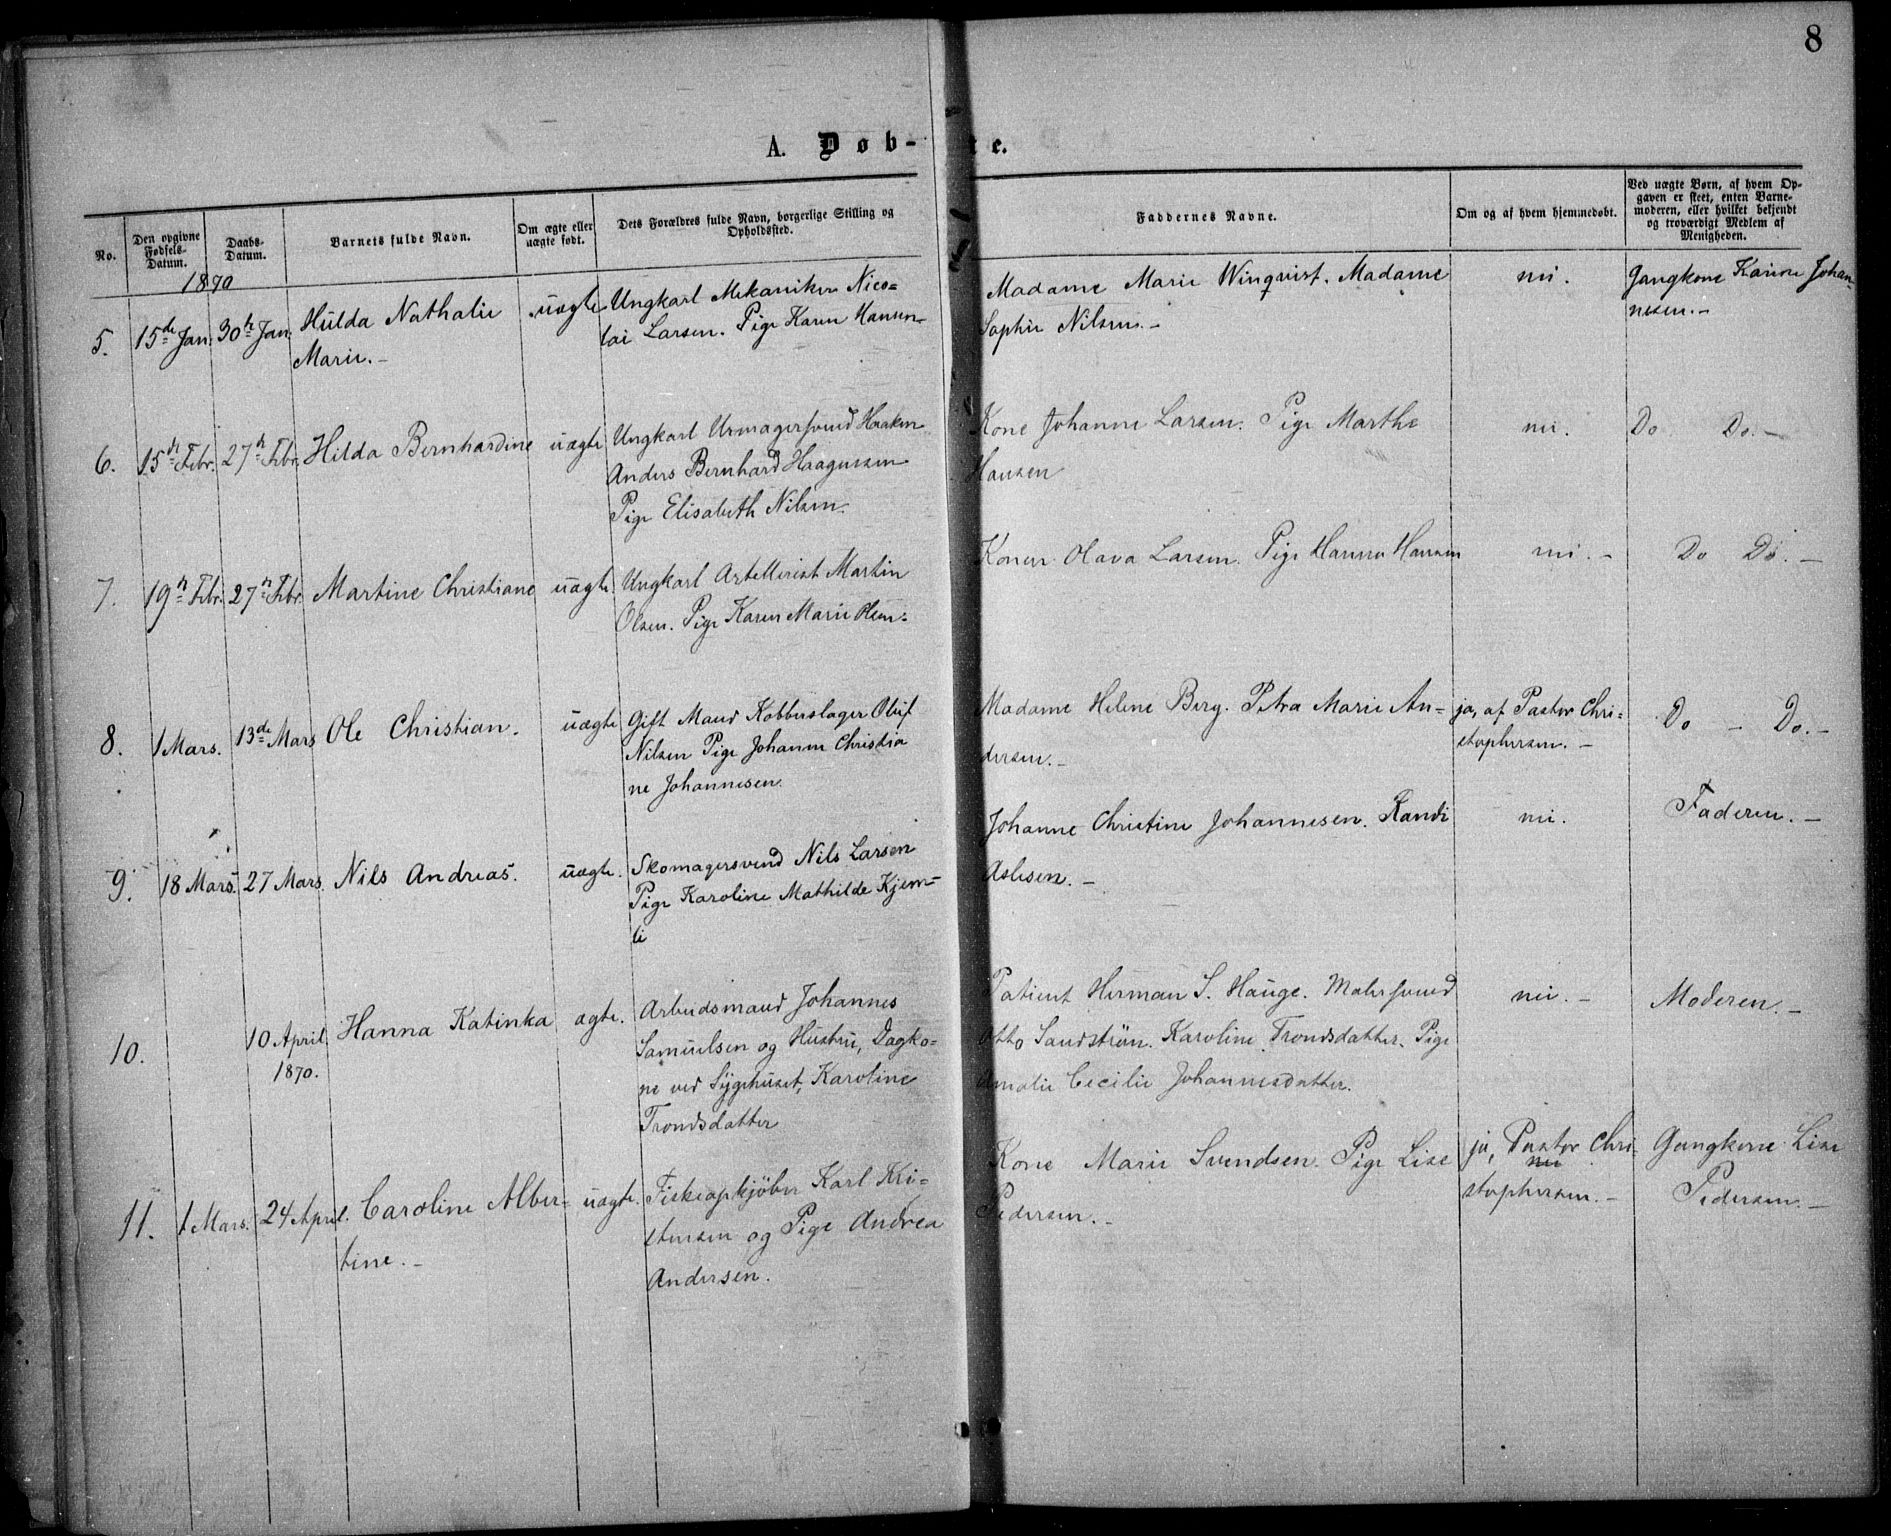 8
A. Døb-te.
No.
Den opgivne Fødsels-Datum.
Daabs-Datum.
Barnets fulde Navn.
Om ægte eller uægte født.
Dets Forældres fulde Navn, borgerlige Stilling og Opholdssted.
Faddernes Navne.
Om og af hvem hjemmedøbt.
Ved uægte Børn, af hvem Opgaven er skeet, enten Barnemoderen, eller hvilket bekjendt og troværdigt Medlem af Menigheden.
1870
5. 15de Jan. 30te Jan. Hulda Nathalie Marie.- uægte
Ungkarl Mekaniker Nico-
lai Larsen. Pige Karen Hansen-
Madame Marie Winqvist. Madame
Sophie Nilsen.-
nei.
Gangkone Karine Johan-
nesen.-
6. 15de Febr. 27de Febr. Hilda Bernhardine uægte
Ungkarl Urmagersvend Haaken
Anders Bernhard Haagensen
Pige Elisabeth Nilsen.
Kone Johanne Larsen. Pige Marthe
Hansen
nei.
Do Do.-
7. 19de Febr. 27de Febr. Martine Christiane uægte.
Ungkarl Artellerist Martin
Olsen. Pige Karen Marie Olsen.
Konen Olava Larsen. Pige Hanna Hansen
nei.-
Do Do.-
8. 1 Mars. 13de Mars Ole Christian. uægte
Gift Mand Kobberslager Oluf
Nilsen Pige Johanne Christia
ne Johannesen.
Madame Helene Berg. Petra Marie An-
dersen.-
ja, af Pastor Chri-
stophersen.-
Do - Do.-
9. 18 Mars. 27 Mars. Nils Andreas. uægte.
Skomagersvend Nils Larsen
Pige Karoline Mathilde Kjem-
li
Johanne Christine Johannesen. Randi
Aslesen.-
nei.
Faderen.-
10. 10 April. 1870. Hanna Katinka ægte.
Arbeidsmand Johannes
Samuelsen og Hustru, Dagko-
ne ved Sygehuset, Karoline
Trondsdatter
Patient Herman S. Hauge. Malersvend
Otto Sandstrøm. Karoline Trondsdatter. Pige
Amalie Cecilie Johannesdatter.
nei.-
Moderen.-
11. 1 Mars. 24 April. Caroline Alber-
tine.- uægte.
Fiskeopkjøber Karl Kri-
stensen og Pige Andrea
Andersen.
Kone Marie Svendsen. Pige Lise
Pedersen.-
ja, Pastor Chri-
nei
stophersen.-
Gangkone Lise
Pedersen.-